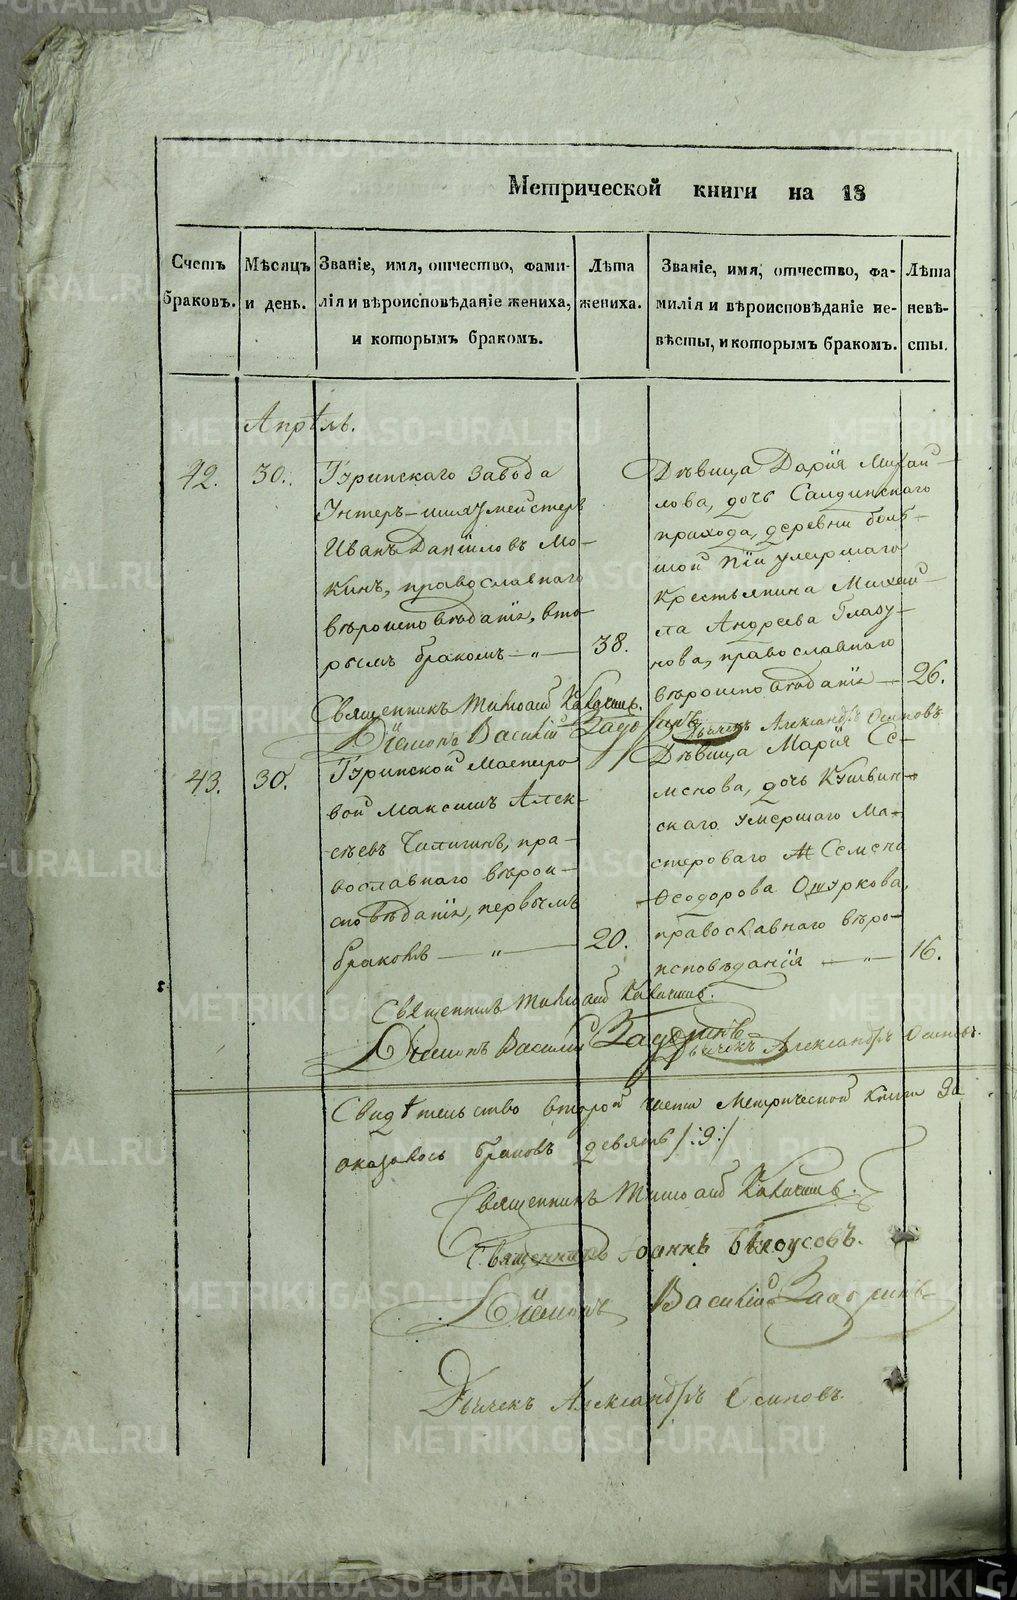 Метрической книги на 18
Счетъ браковъ.
Мѣсяцъ и день.
Званіе, имя, отчество, фами-
лія и вѣроисповѣданіе жениха,
и которымъ бракомъ.
Лѣта жениха.
Званіе, имя, отчество, фа-
милія и вѣроисповѣданіе не-
вѣсты, и которымъ бракомъ.
Лѣта невѣ-
сты.
Апрѣль.
42.
30.
Туринскаго завода
Унтеръ-шихтмейстеръ
Иванъ Даніиловъ Мо-
кинъ, православнаго
вѣроисповѣданія, вто-
рымъ бракомъ — „ —
38.
Дѣвица Дарія Михаи-
лова, дочь Салдинскаго
прихода, деревни боль-
шой умершаго
крестьянина Михаи-
ла Андреева Глазу-
нова, православнаго
вѣроисповѣданія —
26.
Священникъ
Діаконъ Василій
Дьячекъ Александръ Осиповъ
43.
30.
Туринской Мастеро-
вой Максимъ Алек-
сѣевъ пра-
вославнаго вѣрои-
сповѣданія, первымъ
бракомъ — „ —
20.
Дѣвица Марія Се-
менова, дочь Кушвин-
скаго умершаго Ма-
стероваго Семена
Ѳеодорова Ошуркова,
православнаго вѣро-
исповѣданія — „ —
16.
Священникъ
Діаконъ Василій
Дьячекъ Александръ Осиповъ.
Свидѣтельство второй части Метрической книги За
оказалось браковъ девять /:9:/
Священникъ
Священникъ Іоаннъ Бѣлоусовъ.
Діаконъ Василій
Дьячекъ Александръ Осиповъ.
METRIKI.GASO-URAL.RU